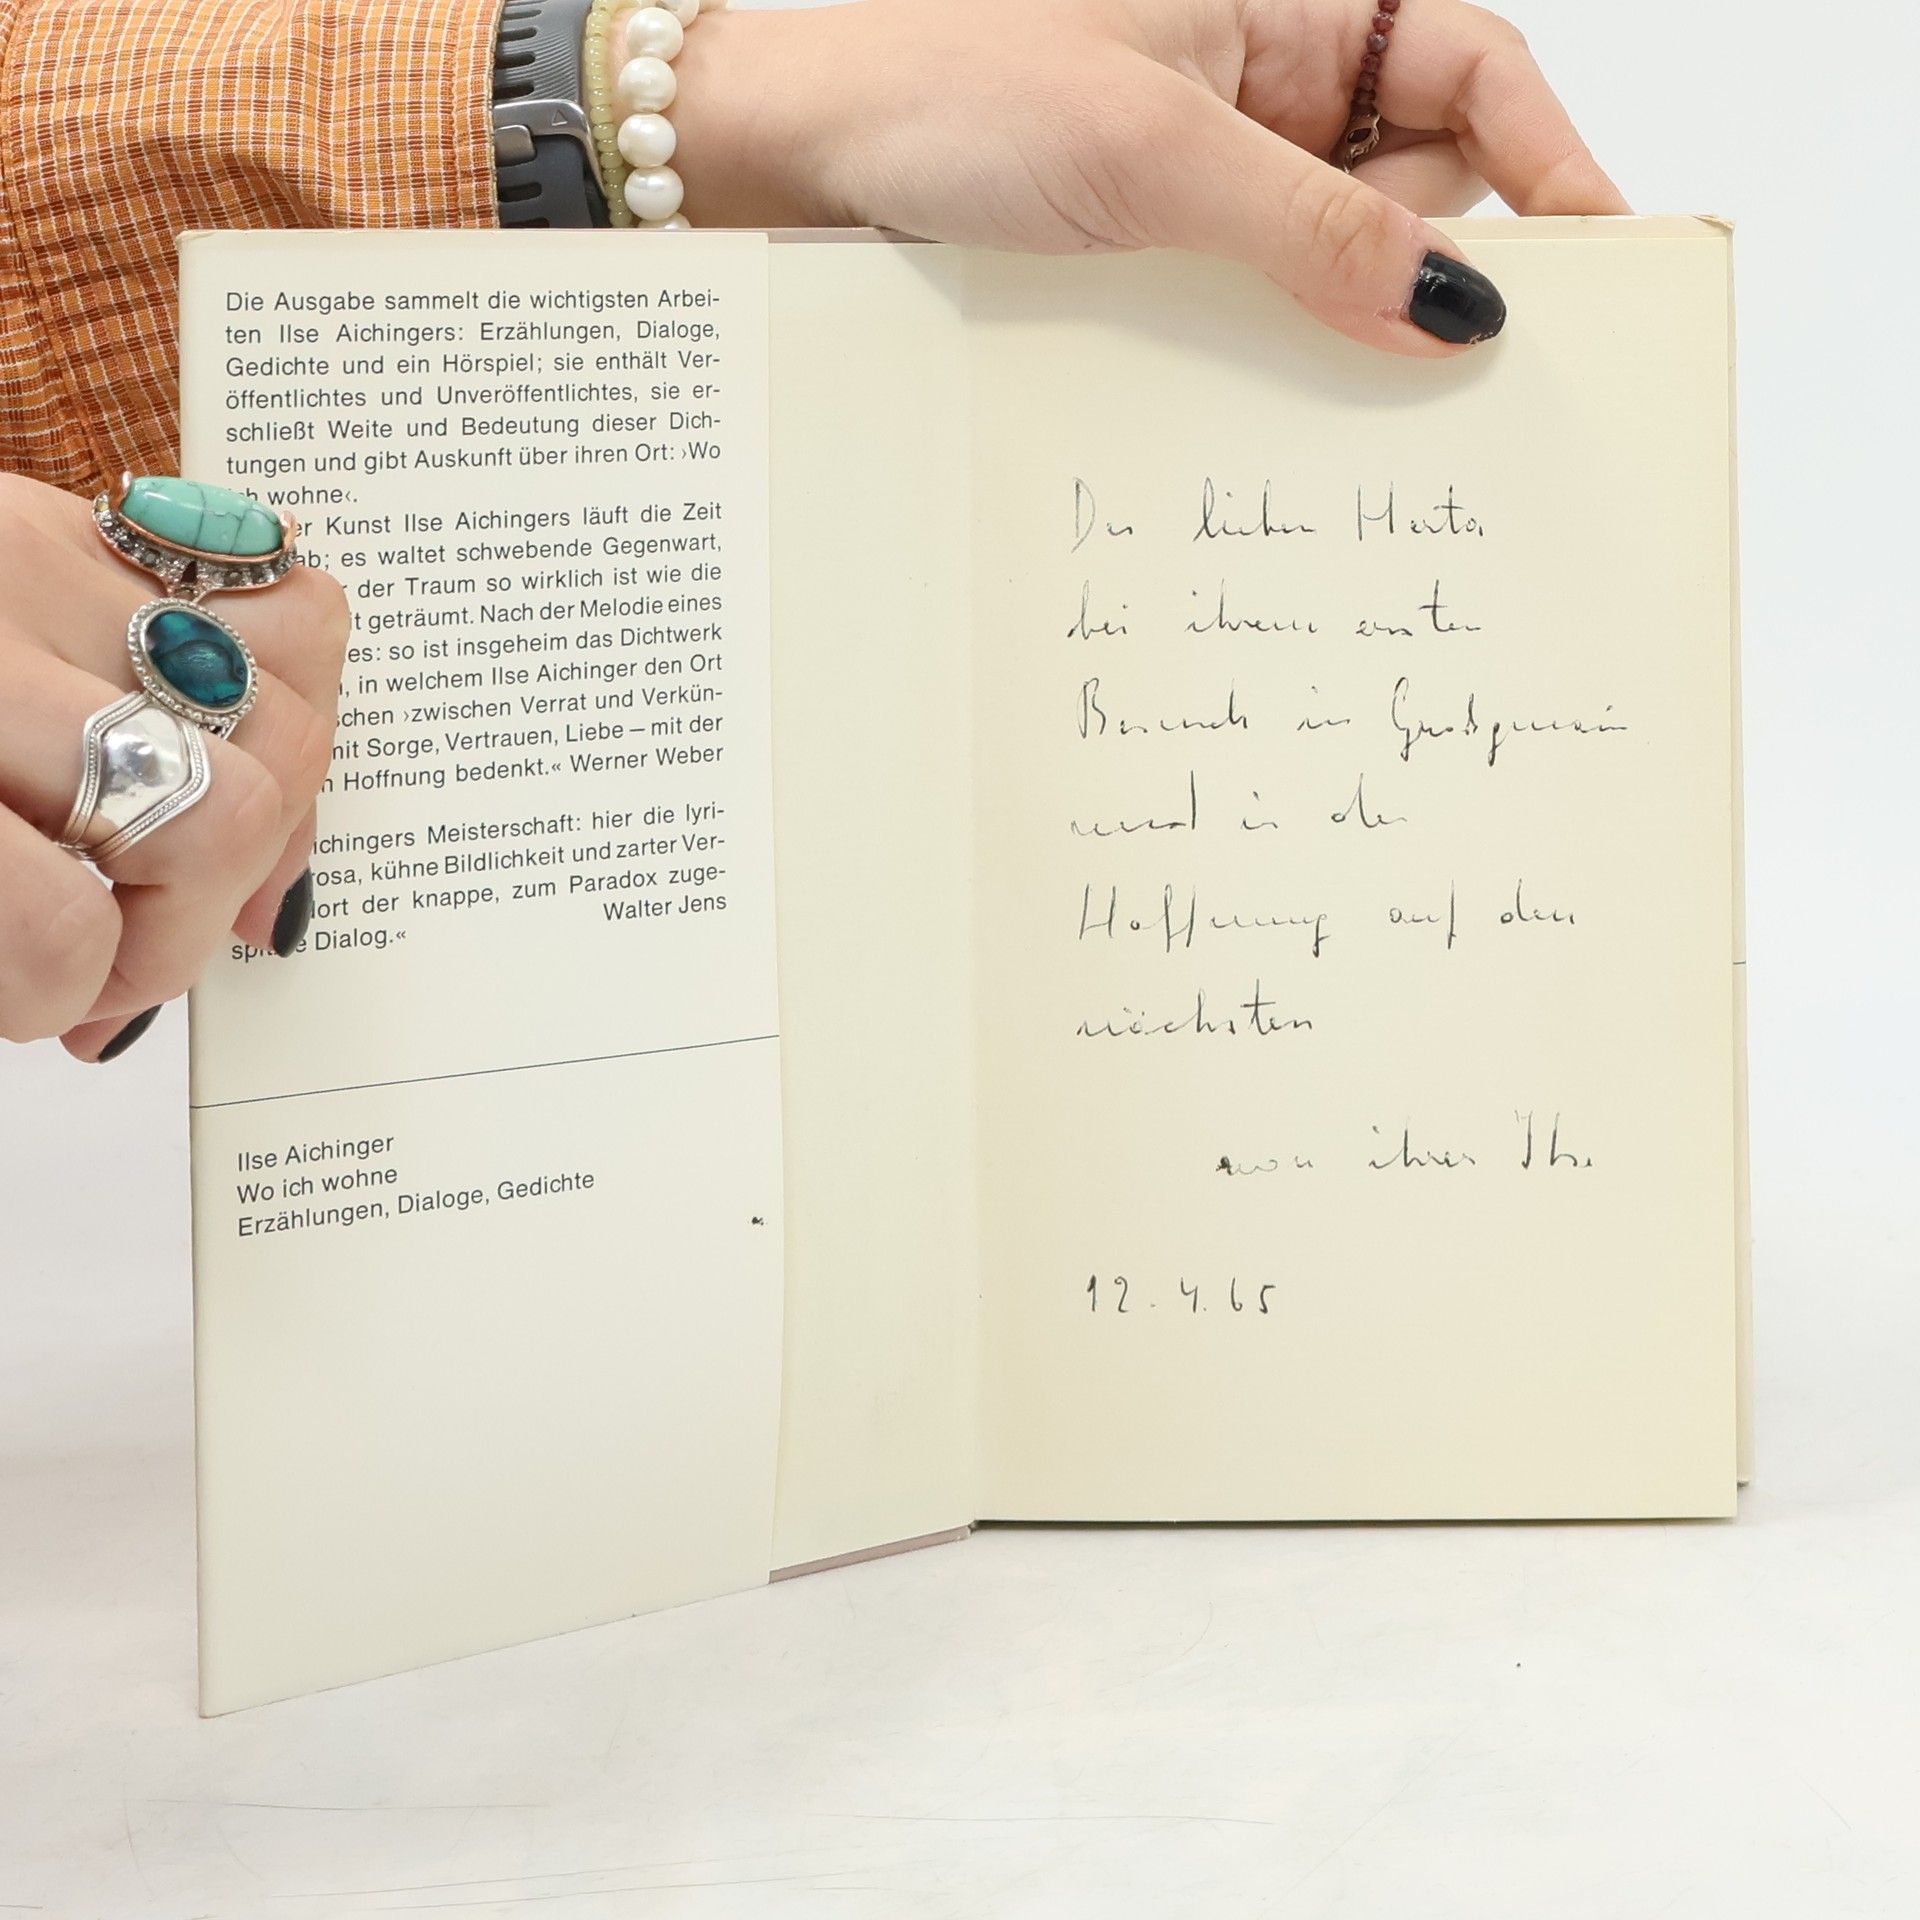 Die Ausgabe sammelt die wichtigsten Arbei-
ten Ilse Aichingers: Erzählungen, Dialoge,
Gedichte und ein Hörspiel; sie enthält Ver-
öffentlichtes und Unveröffentlichtes, sie er-
schließt Weite und Bedeutung dieser Dich-
tungen und gibt Auskunft über ihren Ort: ›Wo
wohne‹.
Kunst Ilse Aichingers läuft die Zeit
ab; es waltet schwebende Gegenwart,
der Traum so wirklich ist wie die
geträumt. Nach der Melodie eines
so ist insgeheim das Dichtwerk
in welchem Ilse Aichinger den Ort
›zwischen Verrat und Verkün-
mit Sorge, Vertrauen, Liebe – mit der
Hoffnung bedenkt.« Werner Weber
Aichingers Meisterschaft: hier die lyri-
kühne Bildlichkeit und zarter Ver-
dort der knappe, zum Paradox zuge-
Dialog.« Walter Jens
Ilse Aichinger
Wo ich wohne
Erzählungen, Dialoge, Gedichte
Der lieben Herta
bei ihrem ersten
Besuch in Großgmain
und in der
Hoffnung auf den
nächsten
von ihrer Ilse
12.4.65